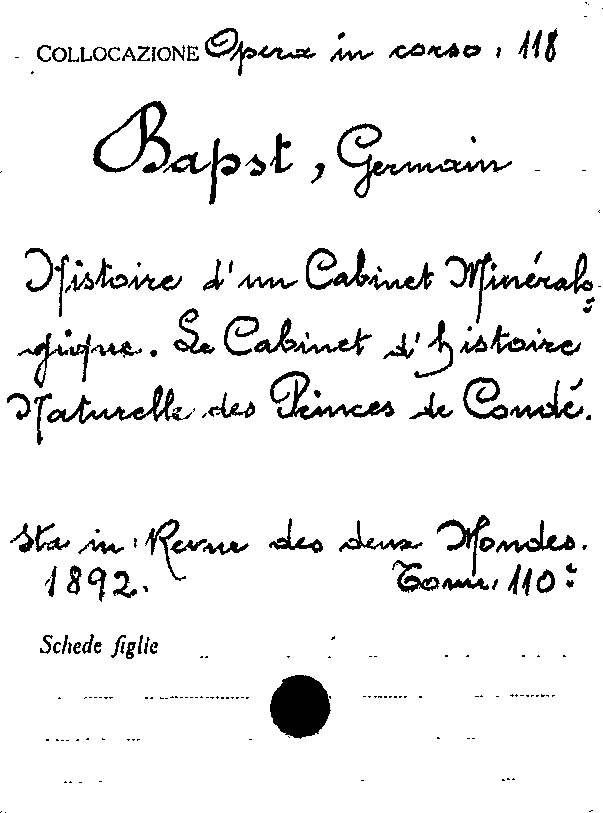 COLLOCAZIONE Opera in corso. 118
Bapst, Germain
Histoire d'un Cabinet Minéralo=
gique. Le Cabinet d'histoire
Naturelle des Princes de Condé.
Sta in: Revue des deux Mondes.
1892. Tome. 110º
Schede figlie